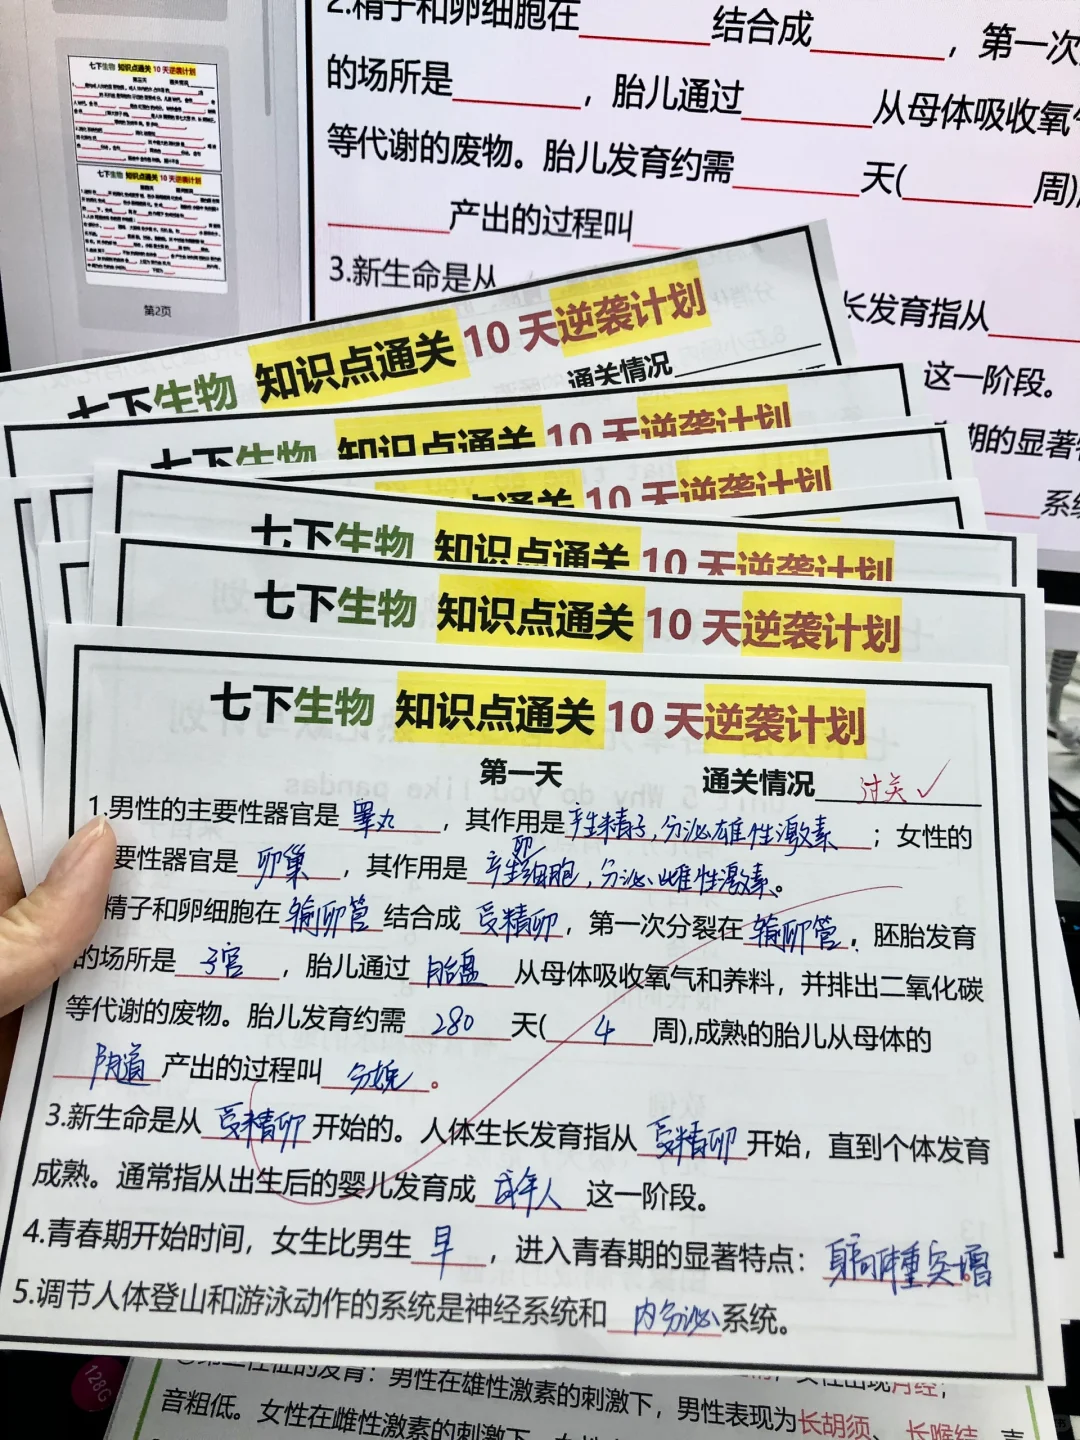 2.精子和卵细胞在 结合成 ，第一次
的场所是 ，胎儿通过 从母体吸收氧气
等代谢的废物。胎儿发育约需 天( 周)
产出的过程叫
3.新生命是从
长发育指从
这一阶段。
期的显著
系
七下生物 知识点通关 10 天逆袭计划
七下生物 知识点通关 10 天逆袭计划
第2页
七下生物 知识点通关 10 天逆袭计划
通关情况
七下生物 知识点通关 10 天逆袭计划
点通关 10 天逆袭计划
七下生物 知识点通关 10 天逆袭计划
七下生物 知识点通关 10 天逆袭计划
七下生物 知识点通关 10 天逆袭计划
第一天 通关情况 过关✓
1.男性的主要性器官是 睾丸 ，其作用是产生精子,分泌雄性激素 ；女性的
要性器官是 卵巢 ，其作用是 产生卵细胞,分泌雌性激素。
精子和卵细胞在 输卵管 结合成 受精卵 ，第一次分裂在 输卵管 . 胚胎发育
的场所是 子宫 ，胎儿通过 胎盘 从母体吸收氧气和养料，并排出二氧化碳
等代谢的废物。胎儿发育约需 280 天( 4 周),成熟的胎儿从母体的
阴道 产出的过程叫 分娩 。
3.新生命是从 受精卵 开始的。人体生长发育指从 受精卵 开始，直到个体发育
成熟。通常指从出生后的婴儿发育成 成年人 这一阶段。
4.青春期开始时间，女生比男生 早 ，进入青春期的显著特点：身高体重突增
5.调节人体登山和游泳动作的系统是神经系统和 内分泌 系统。
128G
的发育：男性在雄性激素的刺激下，
月经，
音粗低。女性在雌性激素的刺激下，男性表现为长胡须、长喉结、